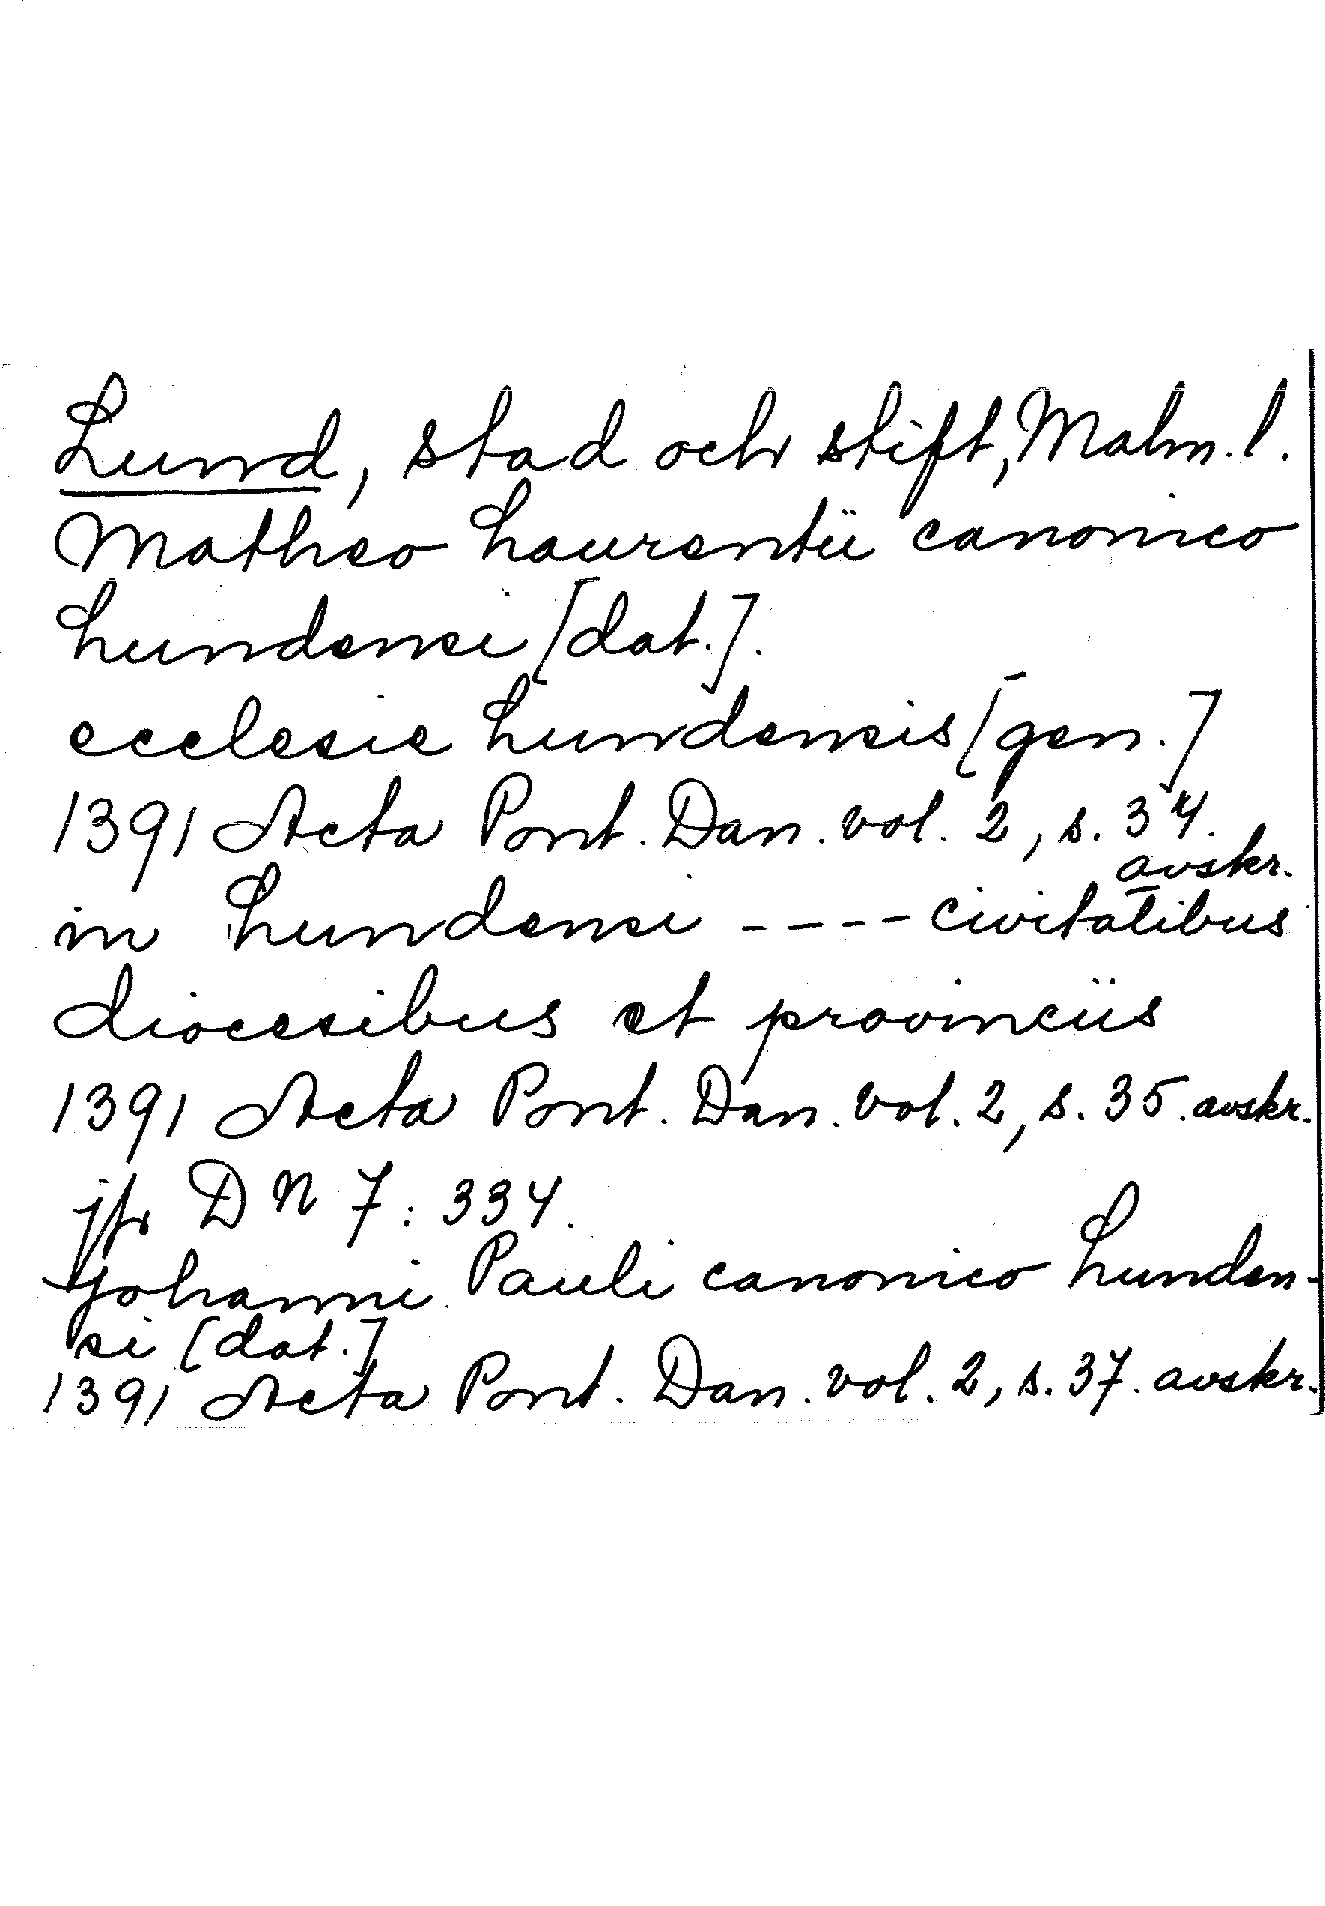 Lund, stad och stift, Malm. l.
Matheo Laurentii canonico
Lundensi [dat.].
ecclesie Lundensis [gen.]
1391 Acta Pont. Dan. vol. 2, s. 34.
avskr.
in Lundensi ---- civitatibus
diocesibus et provinciis
1391 Acta Pont. Dan. vol. 2, s. 35. avskr.
jfr DN 7: 334.
Johanni Pauli canonico Lunden-
si [dat.]
1391 Acta Pont. Dan. vol. 2, s. 37. avskr.